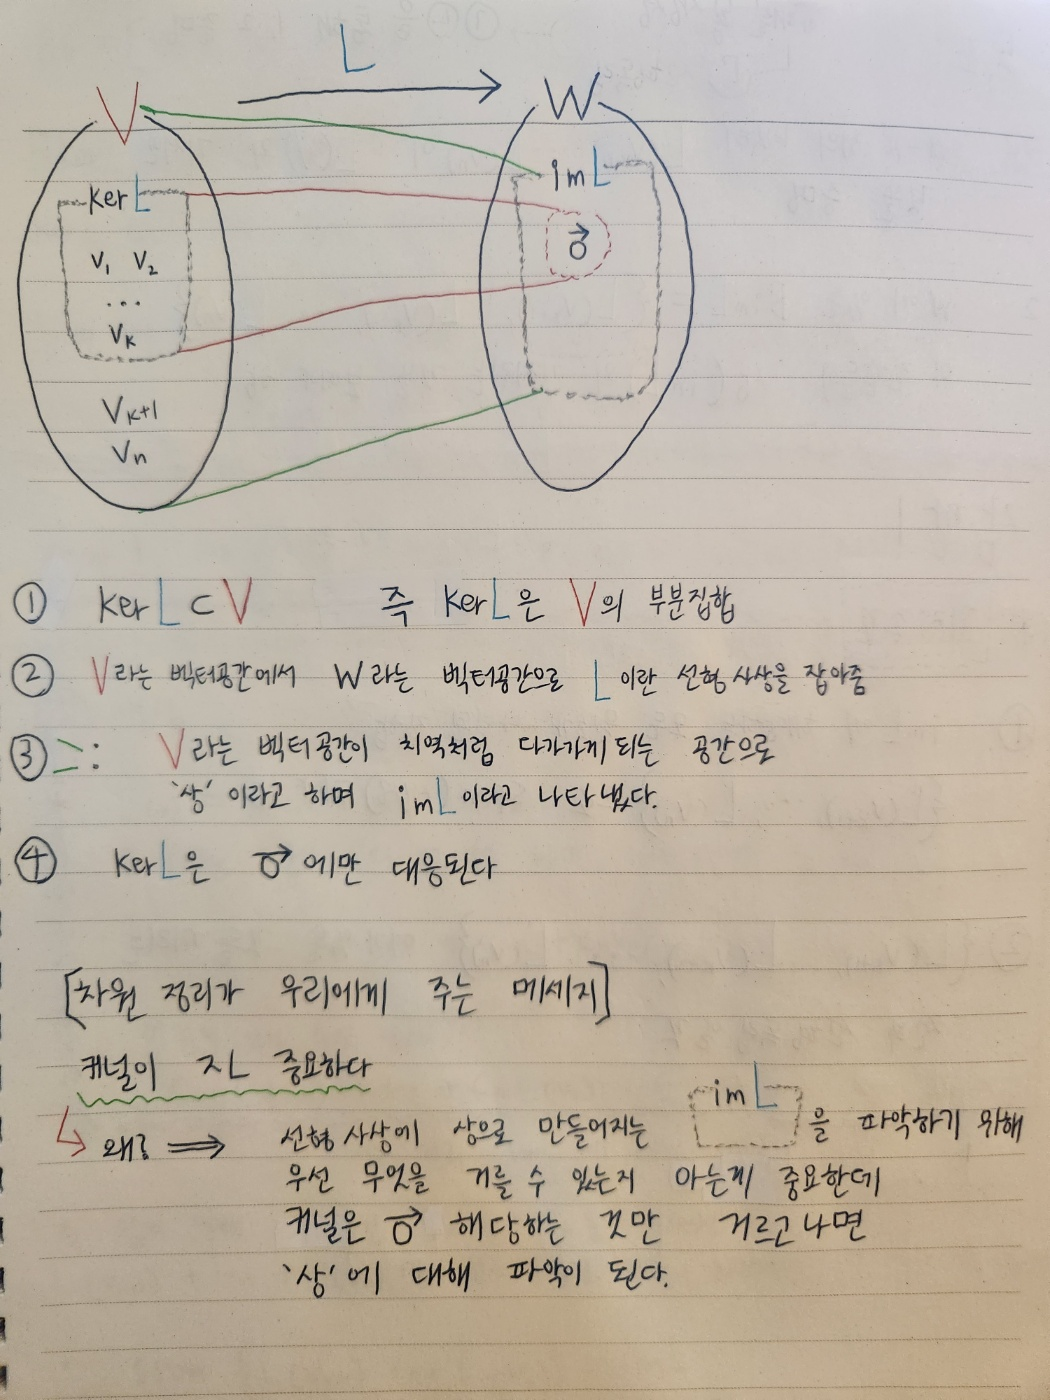 L
V
W
ker L
im L
V₁ V₂
0⃗
...
Vₖ
Vₖ₊₁
Vₙ
① Ker L ⊂ V 즉 Ker L은 V의 부분집합
② V라는 벡터공간에서 W라는 벡터공간으로 L이란 선형사상을 잡아줌
③ : V라는 벡터공간이 치역처럼 다가가게되는 공간으로
'상'이라고 하며 im L이라고 나타냈다.
④ Ker L은 0⃗에만 대응된다
[차원 정리가 우리에게 주는 메세지]
커널이 ㅈㄴ 중요하다
왜? ⇒ 선형사상에 상으로 만들어지는 im L 을 파악하기 위해
우선 무엇을 거를 수 있는지 아는게 중요한데
커널은 0⃗ 해당하는 것만 거르고나면
'상'에 대해 파악이 된다.